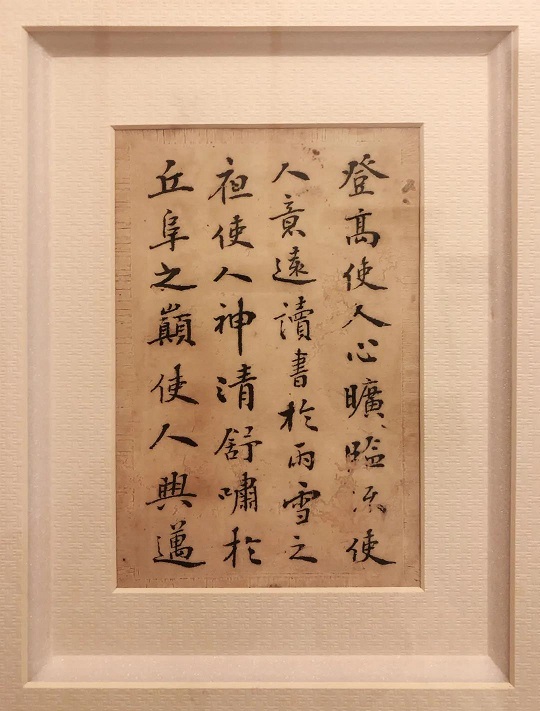 登高使人心曠臨流使
人意遠讀書於雨雪之
夜使人神清舒嘯於
丘阜之巔使人興邁